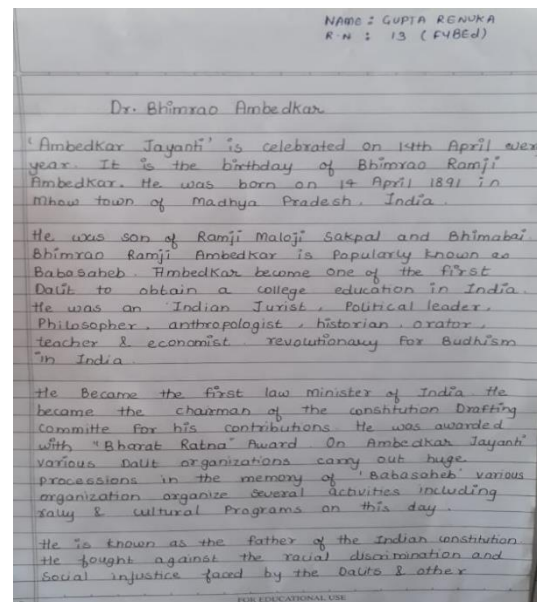 NAME : GUPTA RENUKA
R.N : 13 ( FYBEd)
Dr. Bhimrao Ambedkar
'Ambedkar Jayanti' is celebrated on 14th April ever
year. It is the birthday of Bhimrao Ramji
Ambedkar. He was born on 14 April 1891 in
Mhow town of Madhya Pradesh. India.
He was son of Ramji Maloji Sakpal and Bhimabai
Bhimrao Ramji Ambedkar is Popularly known as
Babasaheb. Ambedkar become one of the first
Dalit to obtain a college education in India.
He was an Indian Jurist, Political leader,
Philosopher, anthropologist, historian, orator,
teacher & economist revolutionary For Budhism
in India.
He Became the first law minister of India. He
became the chairman of the constitution Drafting
Committe For his contributions. He was awarded
with "Bharat Ratna" Award. On Ambedkar Jayanti
various Dalit organizations carry out huge
processions in the memory of 'Babasaheb' various
organization organize several activities including
rally & cultural Programs on this day.
He is known as the father of the Indian constitution.
He fought against the racial discrimination and
Social injustice faced by the Dalits & other
FOR EDUCATIONAL USE